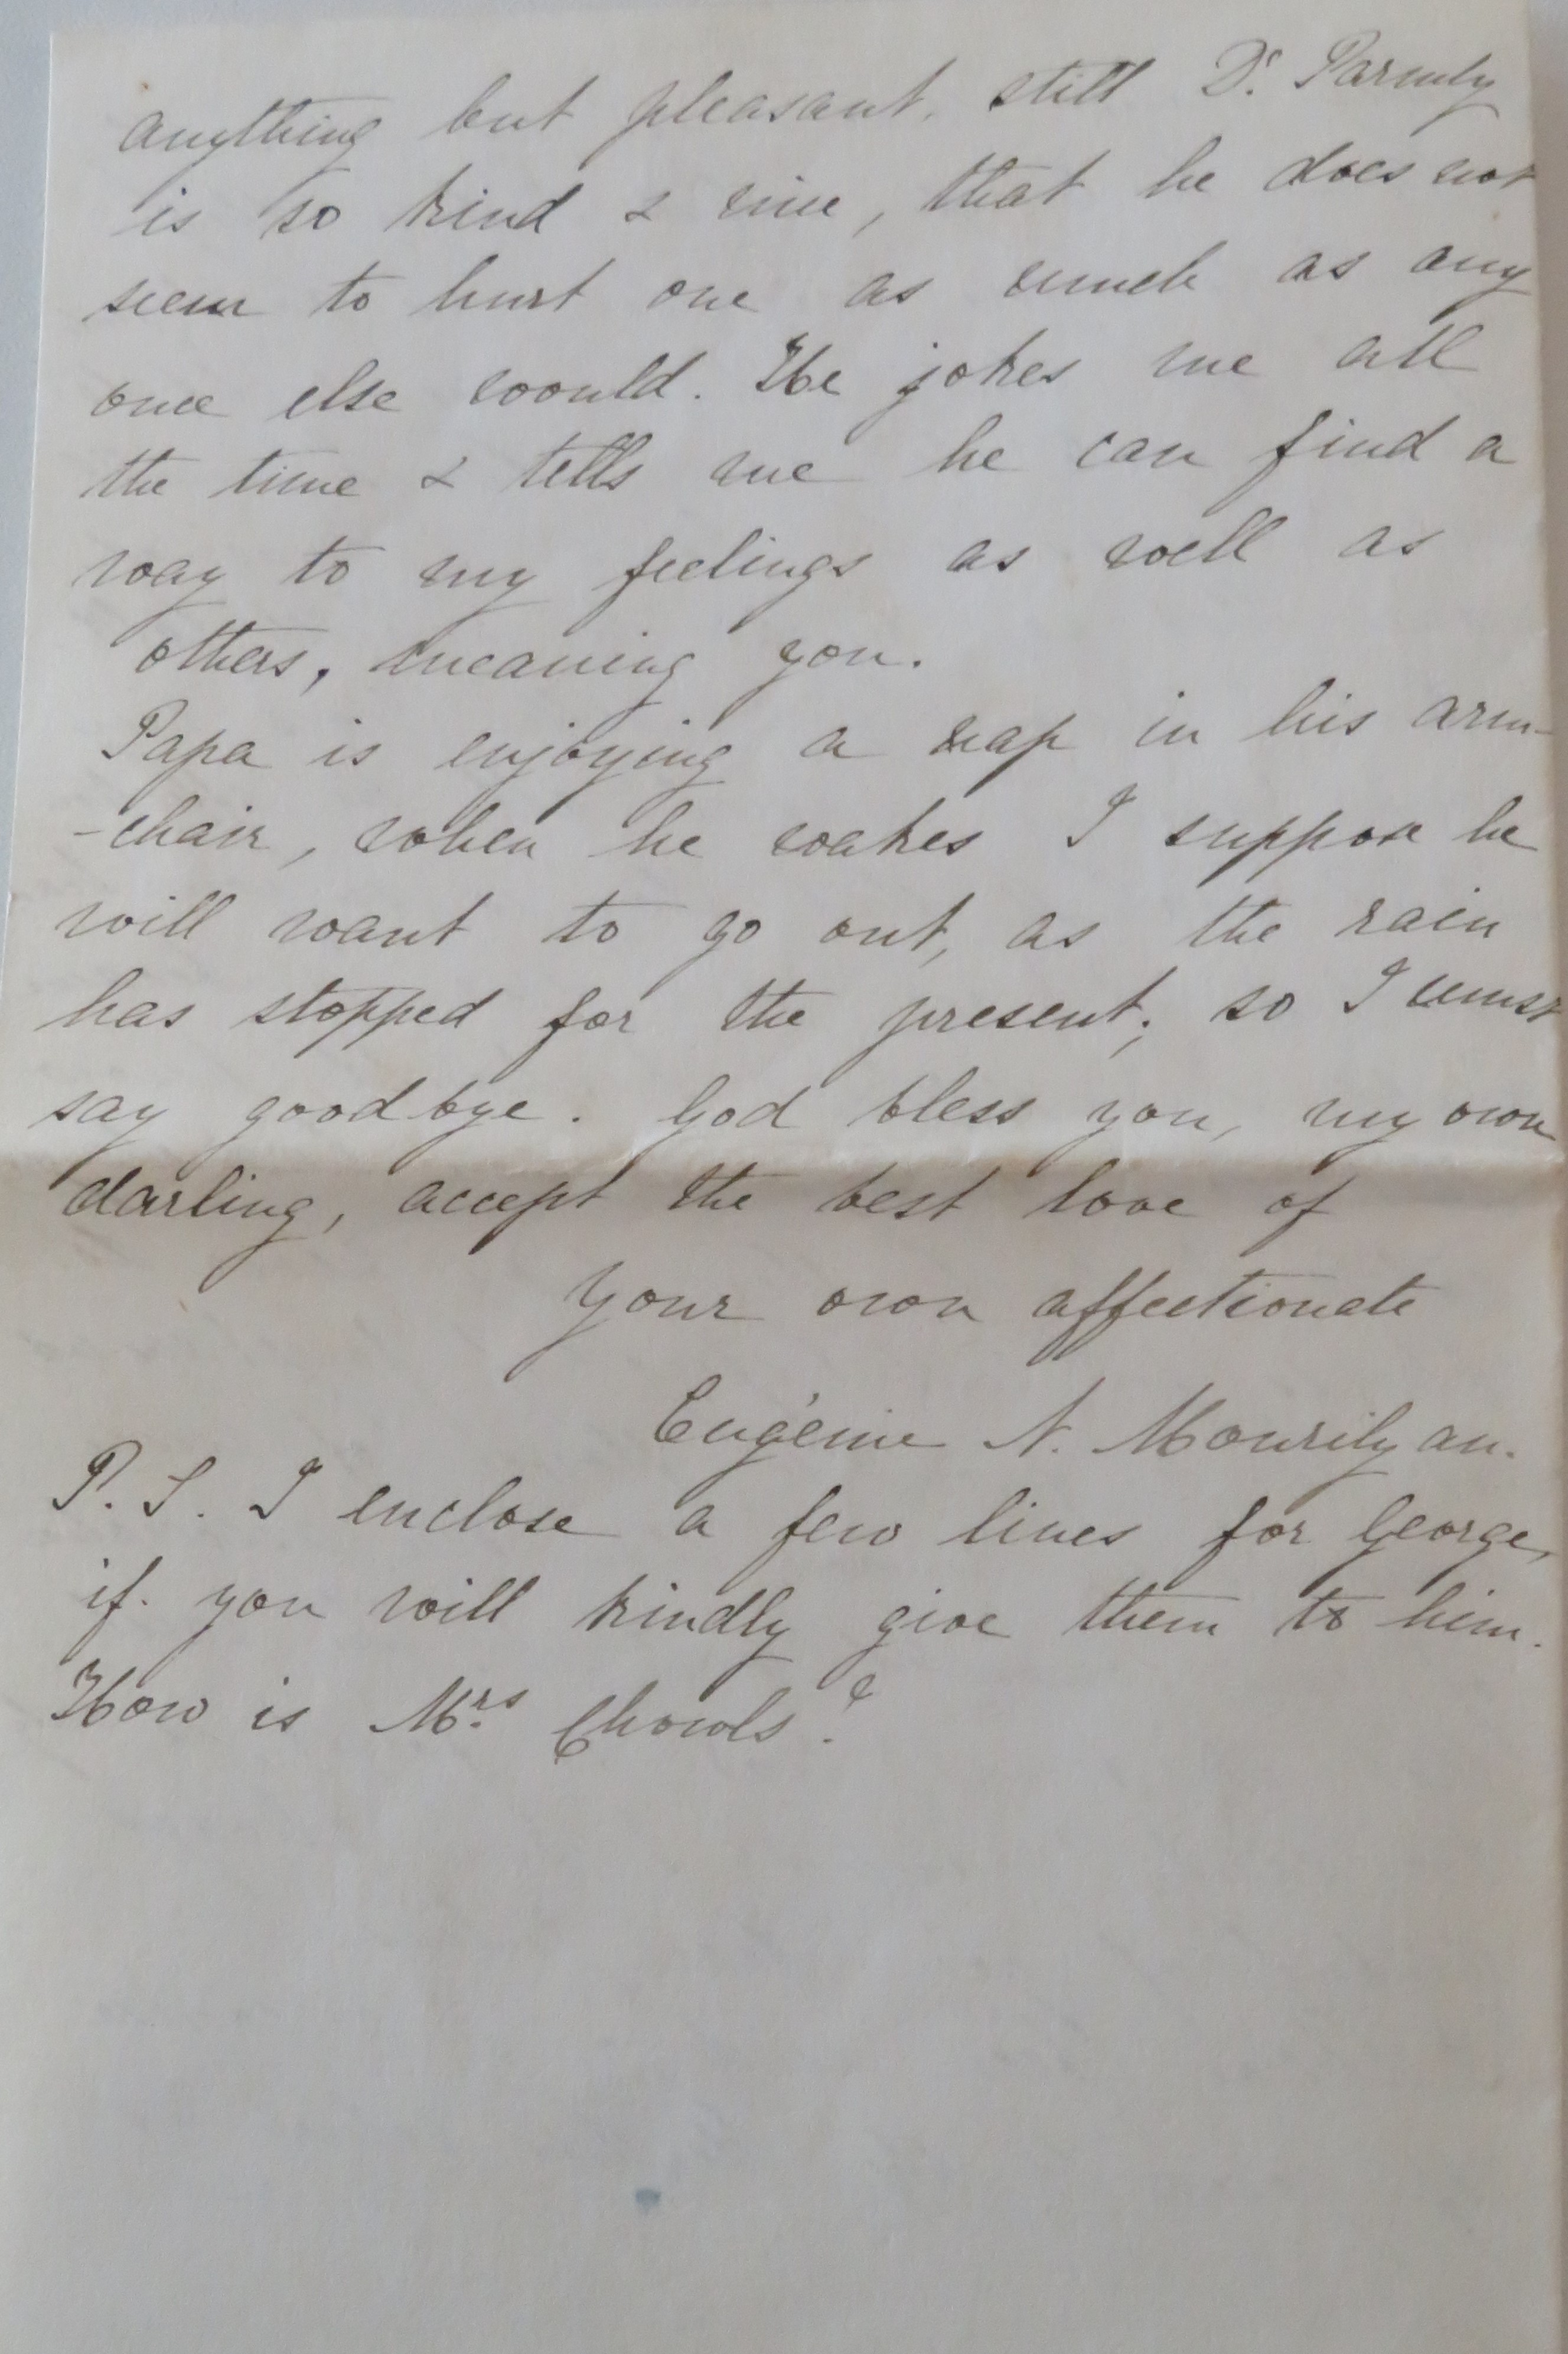 anything but pleasant, still Dr. Parmly
is so kind & nice, that he does not
seem to hurt one as much as any
one else would. He jokes me all
the time & tells me he can find a
way to my feelings as well as
others, meaning you.
Papa is enjoying a nap in his arm-
-chair, when he wakes I suppose he
will want to go out, as the rain
has stopped for the present; so I must
say good bye. God bless you, my own
darling, accept the best love of
your own affectionate
Eugénie N. Mourilyan.
P. S. I enclose a few lines for George,
if you will kindly give them to him.
How is Mrs. Chowls?